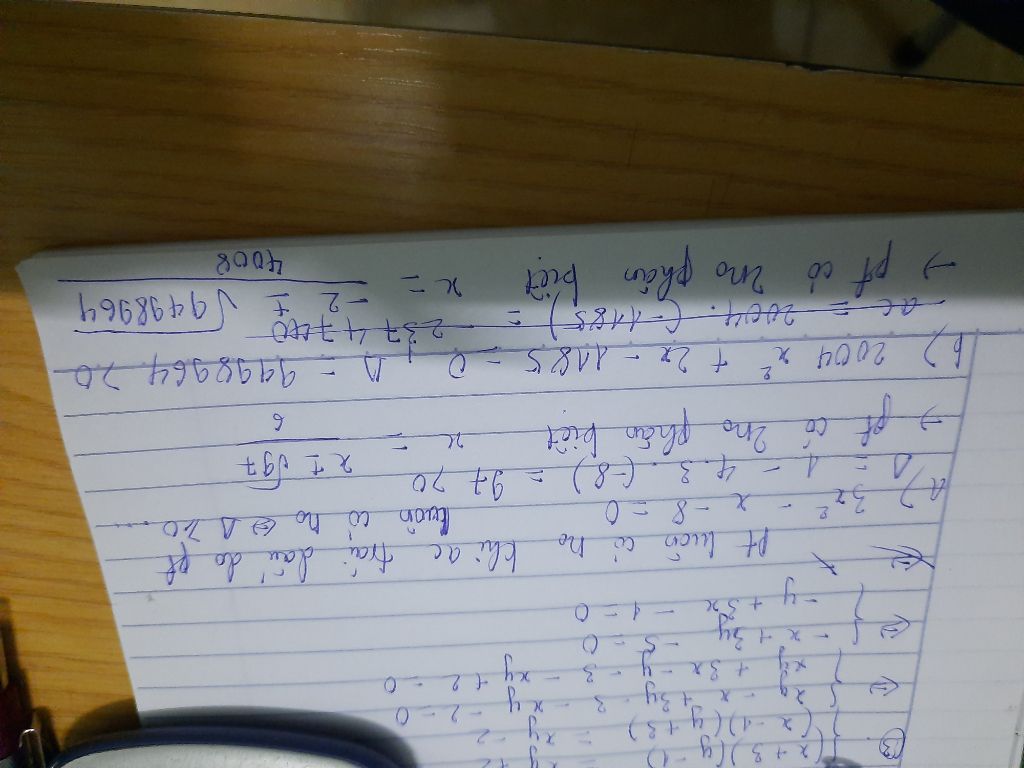 13. { (x + 3)(y - 1) = xy + 2
(x - 1)(y + 3) = xy - 2
⇔ { xy - x + 3y - 3 - xy - 2 = 0
xy + 3x - y - 3 - xy + 2 = 0
⇔ { - x + 3y - 5 = 0
- y + 3x - 1 = 0
pt luôn có no khi ac trái dấu do pt
luôn có no ⇔ Δ > 0
a) 3x² - x - 8 = 0
Δ = 1 - 4.3.(-8) = 97 > 0
→ pt có 2no phân biệt x = x ± √97 / 6
b) 2004 x² + 2x - 1185 = 0 ; Δ = 9498964 > 0
ac = 2004.(-1185) = - 2374 7400
→ pt có 2no phân biệt x = -2 ± √9498964 / 4008